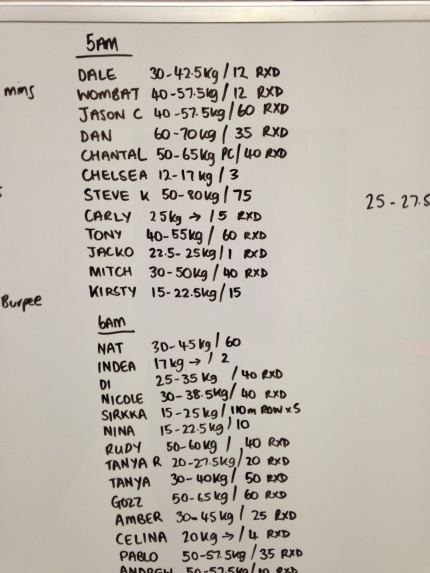 5AM
DALE 30-42.5kg / 12 RXD
mins
WOMBAT 40-57.5kg / 12 RXD
JASON C 40-57.5kg / 60 RXD
DAN 60-70kg / 35 RXD
CHANTAL 50-65kg PC / 40 RXD
CHELSEA 12-17kg / 3
STEVE K 50-80kg / 75
25-27.5
CARLY 25kg → / 5 RXD
TONY 40-55kg / 60 RXD
JACKO 22.5-25kg / 1 RXD
MITCH 30-50kg / 40 RXD
Burpee
KIRSTY 15-22.5kg / 15
6AM
NAT 30-45kg / 60
INDEA 17kg → / 2
DI 25-35kg / 40 RXD
NICOLE 30-38.5kg / 40 RXD
SIRKKA 15-25kg / 110m ROW x 5
NINA 15-22.5kg / 10
RUDY 50-60kg / 40 RXD
TANYA R 20-27.5kg / 20 RXD
TANYA 30-40kg / 50 RXD
GOZZ 50-65kg / 60 RXD
AMBER 30-45kg / 25 RXD
CELINA 20kg → / 4 RXD
PABLO 50-57.5kg / 35 RXD
ANDREW 50-57.5kg / 10 RXD